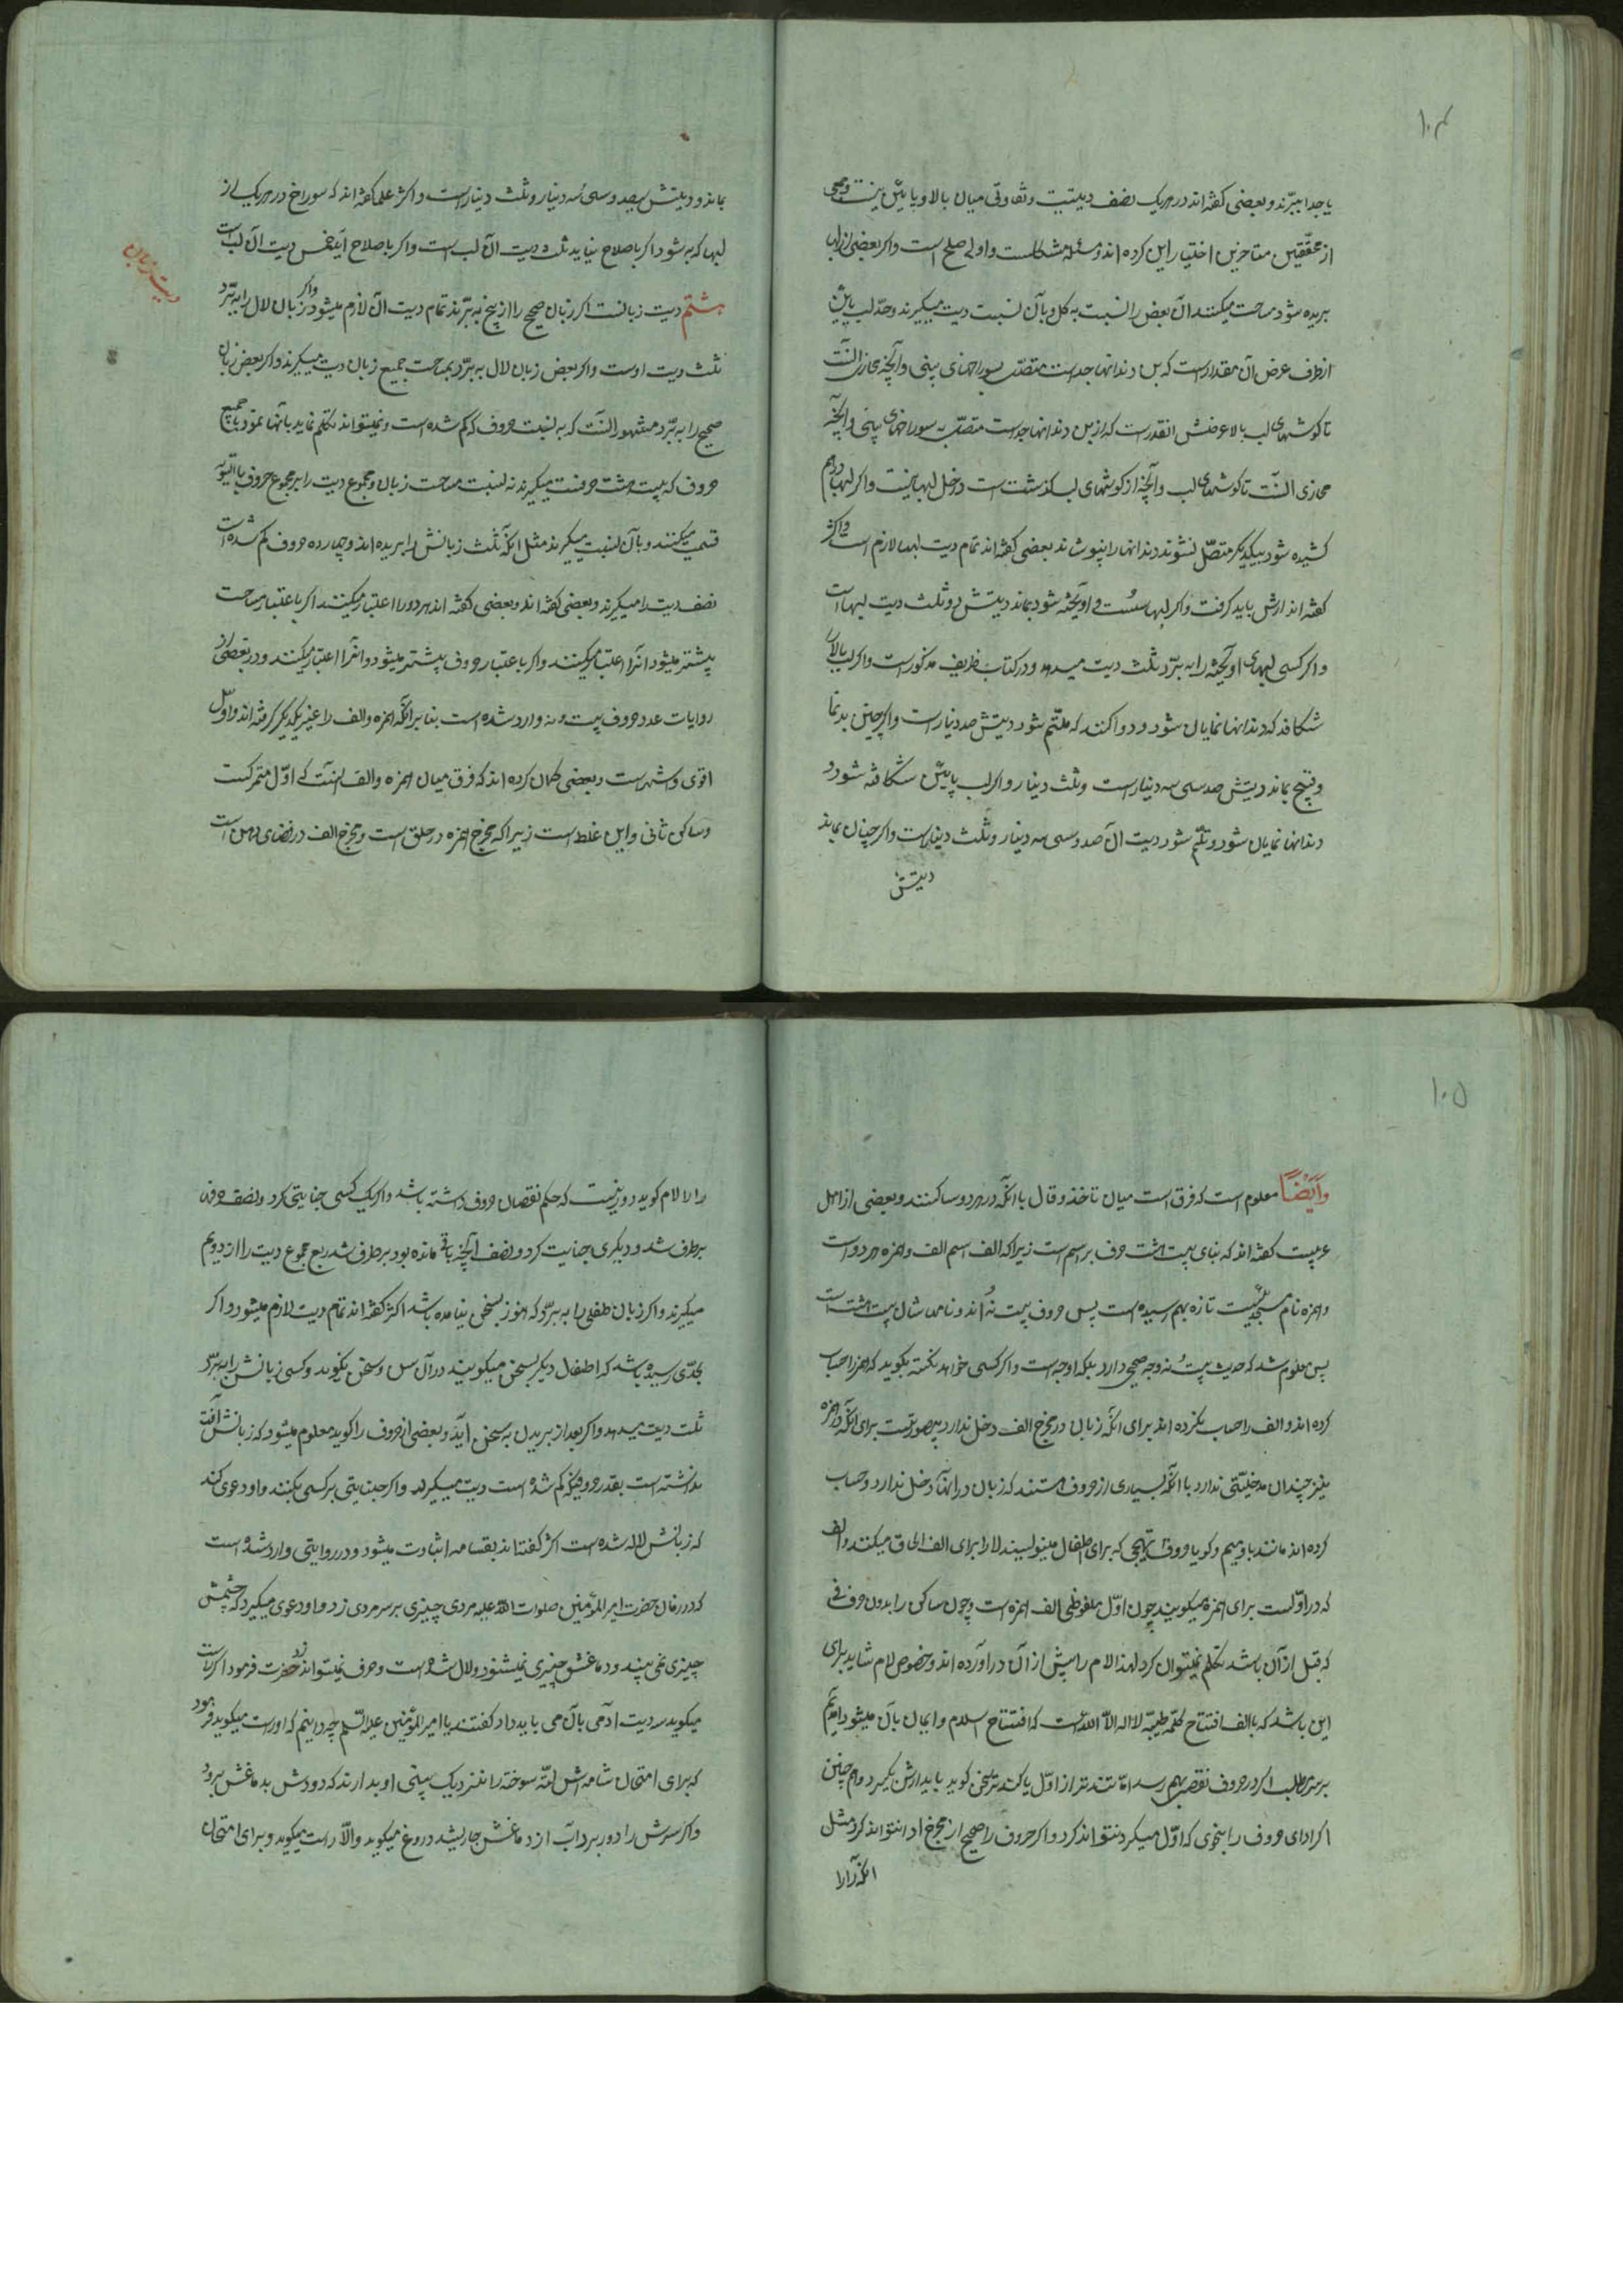 ۱۰۴
یا جدا ببرند و بعضی گفته‌اند در هریک نصف دیتست و تفاوتی میان بالا و پایین نیست و جمعی
از محققین متاخرین اختیار این کرده‌اند و مسئله مشکلست و اولی صلح است و اگر بعضی از لب
بریده شود مساحت میکنند آن بعض را نسبت به کل و بآن نسبت دیت میگیرند و حدّ لب پایین
از طرف عرض آن مقدار است که از بن دندانها جداست متصّل بسوراخهای بینی و آنچه محاذی آنست
تا گوشهای لب بالا عرضش انقدرست که از بن دندانها جداست متصّل به سوراخهای بینی و آنچه
محاذی آنست تا گوشهای لب و آنچه از گوشهای لب گذشته است داخل لبها نیست و اگر لبها درهم
کشیده شود بیکدیگر متصّل نشوند دندانها را نپوشاند بعضی گفته‌اند تمام دیت لبها لازم است و اکثر
گفته‌اند ارش باید گرفت و اگر لبها سُست و اویخته شود بماند دیتش دو ثلث دیت لبها است
و اگر کسی لبهای اویخته را به برّد ثلث دیت میدهد و در کتاب ظریف مذکورست و اگر لب بالا را
شکافد که دندانها نمایان شود و دوا کنند که ملتّم شود دیتش صد دینارست و اگر چنین بدنما
و قبیح بماند دیتش صد سی سه دینارست و ثلث دینار و اگر لب پایین شکافته شود و
دندانها نمایان شود و ملتّم شود دیت آن صد و سی سه دینار و ثلث دینارست و اگر چنان بماند
دیتش
بماند و دیتش سیصد و سی سه دینار و ثلث دینارست و اکثر علما گفته‌اند که سوراخ در هریک از
لبها که به شود اگر باصلاح نیاید ثلث دیت آن لب است و اگر باصلاح اید خمس دیت آن لب است
دیت زبان
هشتم دیت زبانست اگر زبان صحیح را از بیخ به برّند تمام دیت آن لازم میشود و اگر زبان لال را به برّد
ثلث دیت اوست و اگر بعض زبان لال به برّد بمساحت جمیع زبان دیت میگیرند و اگر بعض زبان
صحیح را به برّد مشهور آنست که به نسبت حروف که کم شده است و نمیتواند تکلّم نماید بآنها با جمیع
حروف که بیست هشت حرفست میگیرند نه نسبت مساحت زبان و مجموع دیت را بر مجموع حروف بالسّویه
قسمت میکنند و بآن نسبت میگیرند مثل انکه ثلث زبانش را بریده‌اند و چهارده حروف کم شده است
نصف دیت را میگیرند و بعضی گفته‌اند و بعضی گفته‌اند هر دو را اعتبار میکنند اگر باعتبار مساحت
بیشتر میشود انرا اعتبار میکنند و اگر باعتبار حروف بیشتر میشود و انرا اعتبار میکنند و در بعضی از
روایات عدد حروف بیست و نه وارد شده است بنا بر انکه همزه و الف را غیر یکدیگر گرفته‌اند و اوّل
اقوی و اشهر است و بعضی گمان کرده‌اند که فرق میان همزه و الف اینست که اوّل متحرکست
و ساکن ثانی و این غلط است زیرا که مخرج همزه در حلق است و مخرج الف در فضای دهن است
۱۰۵
وَایضًا معلوم است که فرق است میان تاخذ و قال با انکه در هر دو ساکنند و بعضی از اهل
عربیت گفته‌اند که بنای بیست هشت حرف بر اسم است زیرا که الف اسم الف و همزه هر دو است
و همزه نام تازه بهم رسیده است پس حروف بیست نُه‌اند و نامهاشان بیست هشت است
پس معلوم شد که حدیث بیست نه وجه صحیحی دارد بلکه اوجه است و اگر کسی خواهد نکته بگوید که همزه را حساب
کرده‌اند و الف را حساب نکرده‌اند برای انکه زبان در مخرج الف دخل ندارد بیصورتست برای انکه در همزه
نیز چندان مدخلیّتی ندارد با انکه بسیاری از حروف هستند که زبان در انها دخل ندارد و حساب
کرده‌اند مانند با و میم و گویا حروف تهجّی که برای اطفال مینویسند لا را برای الف الحاق میکنند و الف
که در اوّلست برای همزه میگویند چون اوّل ملفوظی الف همزه است و چون ساکن را بدون حرفی
که قبل از آن باشد تکلّم نمیتوان کرد لهذا لام را پیش از آن در آورده‌اند و خصوص لام شاید برای
این باشد که با الف افتتاح کلمهٔ طیبّه لا اله الاّ اللّه است که افتتاح اسلام و ایمان بآن میشود آمدیم
بر سر مطلب اگر در حروف نقصی بهم رسد امّا تندتر از اوّل یا کندتر سخن گوید باید ارش بگیرد و هم چنین
اگر ادای حروف را بنحوی که اوّل میکرد نتواند کرد و اگر حروف را صحیح از مخرج ادا نتواند کرد مثل
انکه را را
را لام گوید دور نیست که حکم نقصان حروف داشته باشد و اگر یک کسی جنایتی کرد و نصف حرف
برطرف شد و دیگری جنایت کرد و نصف انچه باقی مانده بود برطرف شد ربع مجموع دیت را از دویم
میگیرند و اگر زبان طفلی را به برّد که هنوز بسخن نیامده باشد اکثر گفته‌اند تمام دیت لازم میشود و اگر
بحدّی رسیده باشد که اطفال دیگر بسخن میگویند در آن سن و سخن نگوید و کسی زبانش را به برّد
ثلث دیت میدهد و اگر بعد از بریدن به سخن آید و بعضی از حروف را گوید معلوم میشود که زبانش آفت
نداشته است بقدر حروفیکه کم شده است دیت میگیرد و اگر جنایتی بر کسی بکنند و او دعوی کند
که زبانش لال شده است اکثر گفته‌اند بقسامه اثبات میشود و در روایتی وارد شده است
که در زمان حضرت امیر المؤمنین صلوات اللّه علیه مردی چیزی بر سر مردی زد و او دعوی میکرد که چشمش
چیزی نمی بیند و دماغش چیزی نمیشنود و لال شده است و حرف نمیتواند زد حضرت فرمود اگر راست
میگوید سه دیت ادمی بآن می باید داد گفتند یا امیر المؤمنین علیه السّلم چه دانیم که او راست میگوید فرمود
که برای امتحان شامه‌اش لتّه سوخته را نزدیک بینی او بدارند که دودش بدماغش برود
و اگر سرش را دور برد و آب از دماغش جاریشد دروغ میگوید و الاّ راست میگوید و برای امتحان